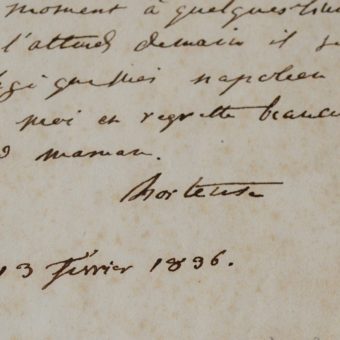 moment à quelques
l'attends demain il
napoléon
moi en regrette beauco
maman.
hortense
13 février 1836.